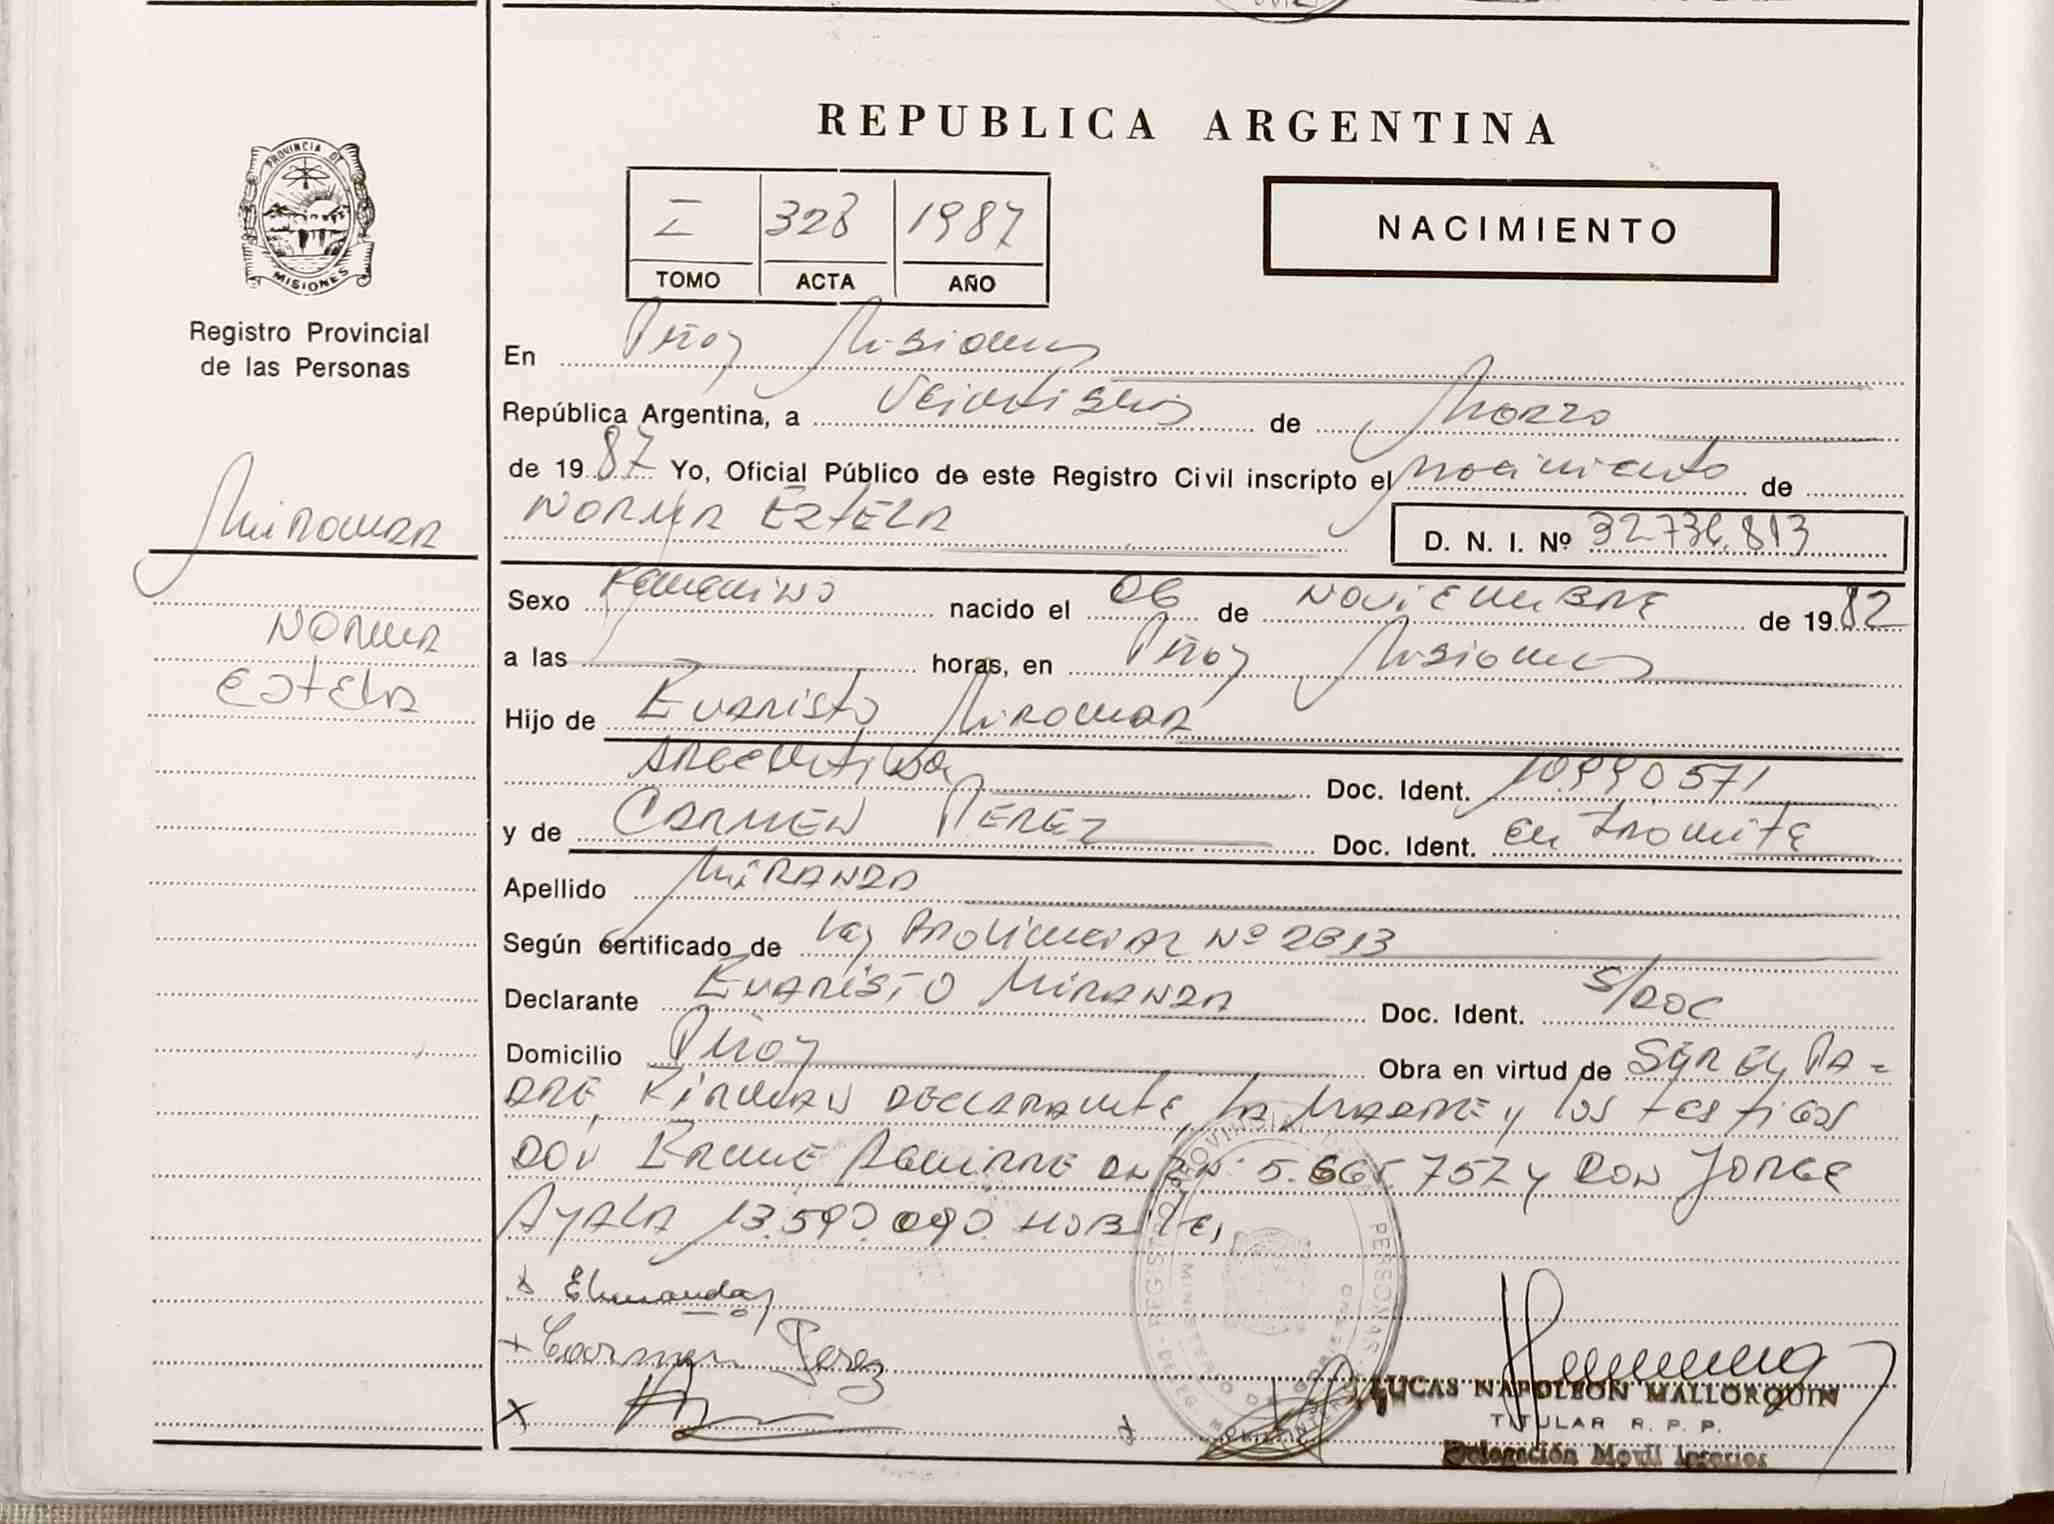 REPUBLICA ARGENTINA
PROVINCIA DE
MISIONES
Registro Provincial
de las Personas
I 323 1987
TOMO ACTA AÑO
NACIMIENTO
En Misiones
República Argentina, a Veintiseis de Marzo
de 1987 Yo, Oficial Público de este Registro Civil inscripto el nacimiento de
NORMA EstELA
D. N. I. Nº 32.736.813
NORMA
EstELA
Sexo Femenino nacido el 06 de NOViEMBRE de 1982
a las horas, en Misiones
Hijo de Evaristo
ARGENtiNA Doc. Ident. 10.990571
y de CARMEN PEREZ Doc. Ident. en tramite
Apellido MiRANDA
Según certificado de Ley PROViNCiAL Nº 2813
Declarante EVARiSTO MiRANDA Doc. Ident. S/DOC
Domicilio Obra en virtud de SER EL PA=
DRE, FiRMAN DECLARANtE, LA MADRE y los testigos
DON AGUiRRE DNI Nº 5.665.757 y DON JORGE
AYALA 13.590.090. HOBiLE,
x EMiranda
x Carmen Perez
x
x
LUCAS NAPOLEON MALLORQUIN
TITULAR R. P. P.
Delegación Movil Interior